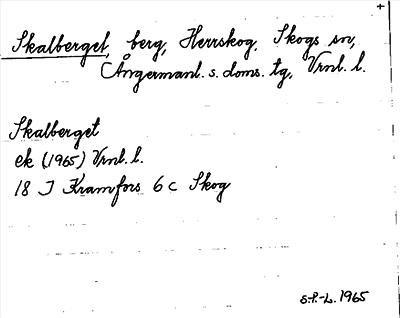 Skalberget, berg, Herrskog, Skogs sn,
Ångermanl. s. doms. tg, Vrnl. l.
Skalberget
ek (1965) Vrnl. l.
18 J Kramfors 6 c Skog
S.P.-L. 1965